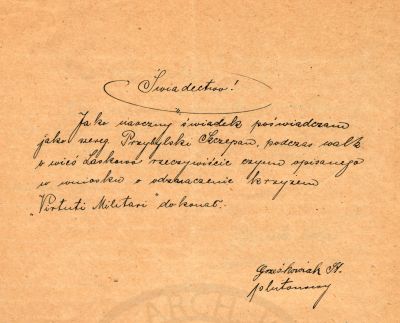 Świadectwo!
Jako naoczny świadek poświadczam
jako szereg. Przybylski Szczepan, podczas walk
o wieś Laskowo rzeczywiście czyn opisanego
w wniosku o odznaczenie krzyżem
"Virtuti Militari" dokonał.
Grześkowiak St.
plutonowy
ARCH